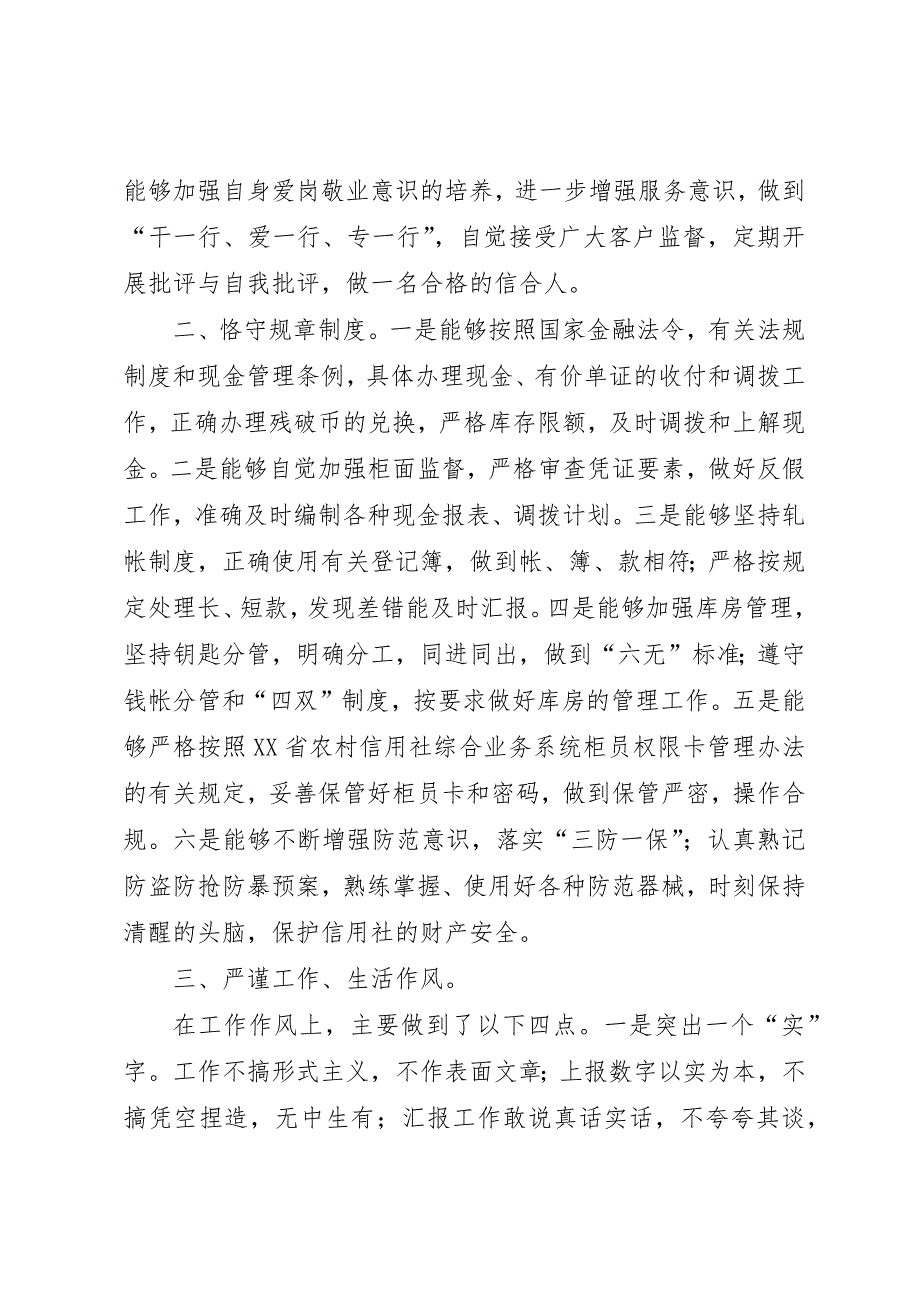 能够加强自身爱岗敬业意识的培养，进一步增强服务意识，做到
“干一行、爱一行、专一行”，自觉接受广大客户监督，定期开
展批评与自我批评，做一名合格的信合人。
二、恪守规章制度。一是能够按照国家金融法令，有关法规
制度和现金管理条例，具体办理现金、有价单证的收付和调拨工
作，正确办理残破币的兑换，严格库存限额，及时调拨和上解现
金。二是能够自觉加强柜面监督，严格审查凭证要素，做好反假
工作，准确及时编制各种现金报表、调拨计划。三是能够坚持轧
帐制度，正确使用有关登记簿，做到帐、簿、款相符；严格按规
定处理长、短款，发现差错能及时汇报。四是能够加强库房管理，
坚持钥匙分管，明确分工，同进同出，做到“六无”标准；遵守
钱帐分管和“四双”制度，按要求做好库房的管理工作。五是能
够严格按照 XX 省农村信用社综合业务系统柜员权限卡管理办法
的有关规定，妥善保管好柜员卡和密码，做到保管严密，操作合
规。六是能够不断增强防范意识，落实“三防一保”；认真熟记
防盗防抢防暴预案，熟练掌握、使用好各种防范器械，时刻保持
清醒的头脑，保护信用社的财产安全。
三、严谨工作、生活作风。
在工作作风上，主要做到了以下四点。一是突出一个“实”
字。工作不搞形式主义，不作表面文章；上报数字以实为本，不
搞凭空捏造，无中生有；汇报工作敢说真话实话，不夸夸其谈，